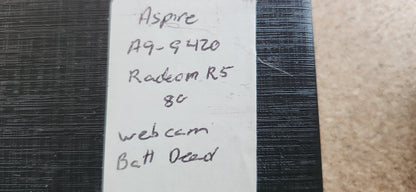 Aspire
A9-9420
Radeom R5
8G
webcam
Batt Dead